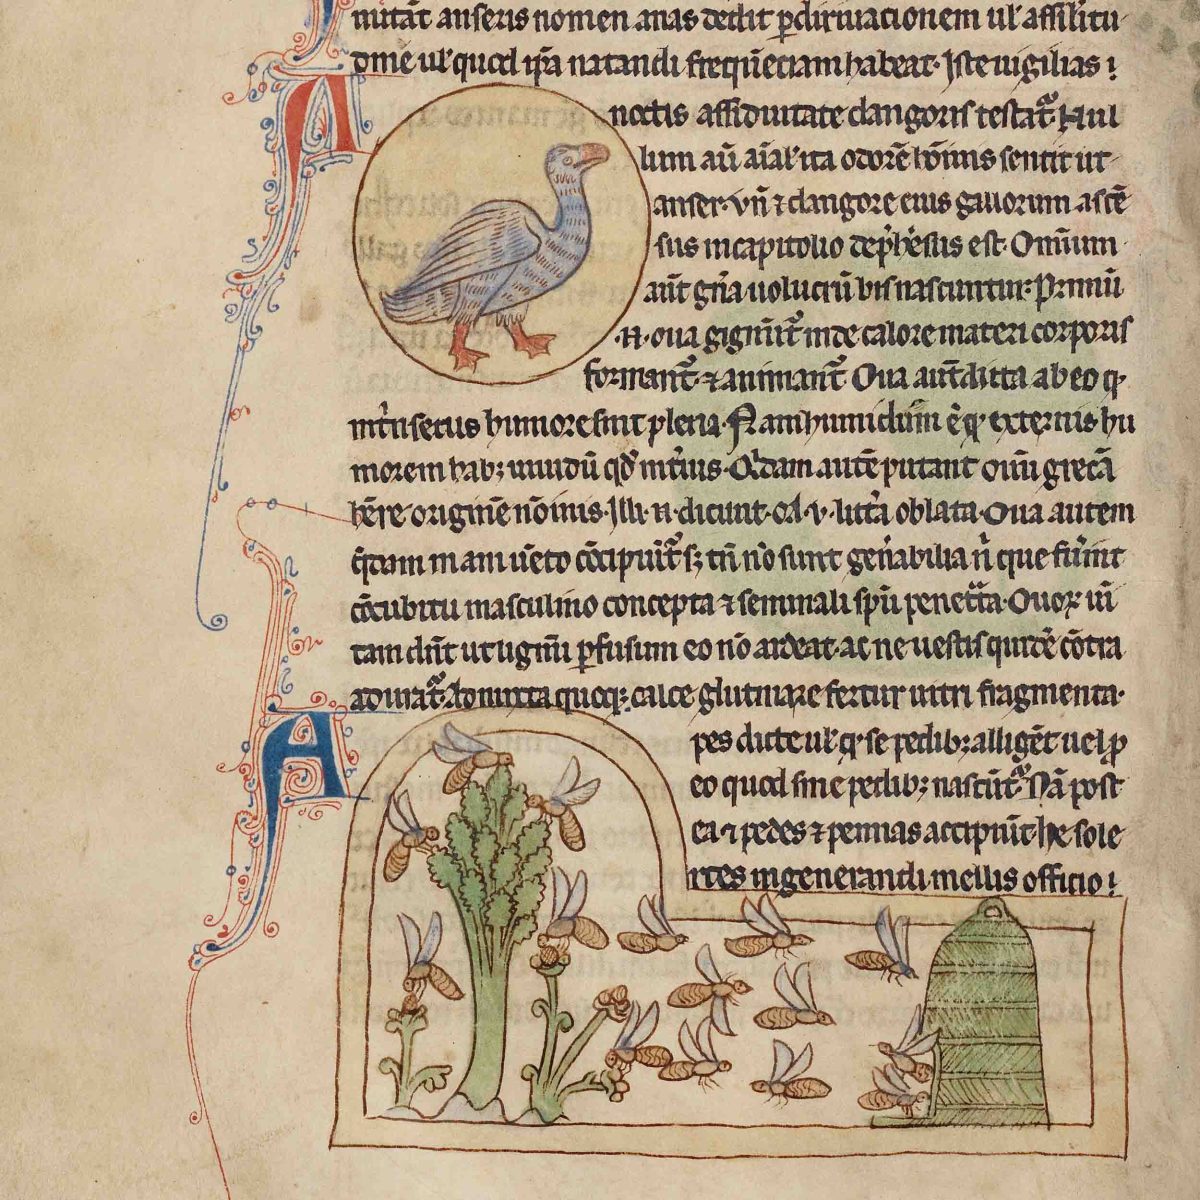 mutat anseris nomen anas dedit p diriuacionem ul' affilitu
dine ul' quod ipsa natandi frequenciam habeat. Iste uigilias
noctis assiduitate clangoris testat᷑. Nul
lum aū aīal ita odorē hoīnis sentit ut
anser. vn̄ ⁊ clangore eius gallorum ascē
sus in capitolio dep̄hēsus est. Omnium
aūt gn̄a uolucrū bis nascuntur. Primū
.n. oua gignūt᷑ inde calore materi corporis
formant᷑ ⁊ animant᷑. Oua aūt dicta ab eo q̄
int'nsecus humore sint plena. Nam humidum ē q̄ externis hu
morem hab; uiuidū qd' int'ius. Q'dam autē putant ouū grecā
hēre originē nōinis. Illi .n. dicunt. oa .v. litt'a oblata. Oua autem
q'dam inani uēto cōcipiūt᷑ s; tn̄ nō sunt gen'abilia n' que fu'int
cōcubitu masculino concepta ⁊ seminali spū penet'ta. Ouoꝝ uī
tam dn̄t ut lignū p'fusum eo nō ardeat. ac ne uestis quidē cōtra
adurat᷑. Admixta quoq; calce glutinare fertur uitri fragmenta.
A pes dicte ul' q' se pedib; alligēt uel p
eo quod sine pedib; nascūt᷑. Nā post
ea ⁊ pedes ⁊ pennas accipiūt. he sole
rtes in generandi mellis officio